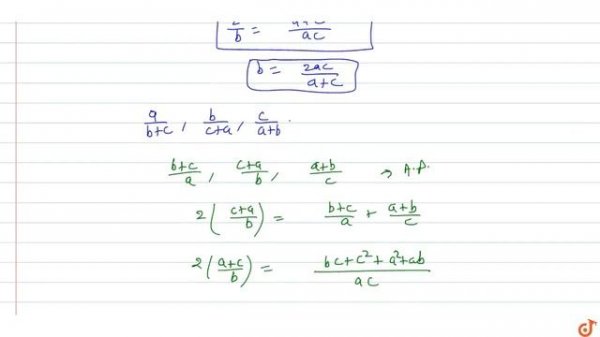 2/b = (a+c)/ac
b = 2ac/(a+c)
a/(b+c) , b/(c+a) , c/(a+b) .
(b+c)/a , (c+a)/b , (a+b)/c → A.P.
2((c+a)/b) = (b+c)/a + (a+b)/c
2((a+c)/b) = (bc+c²+a²+ab)/ac